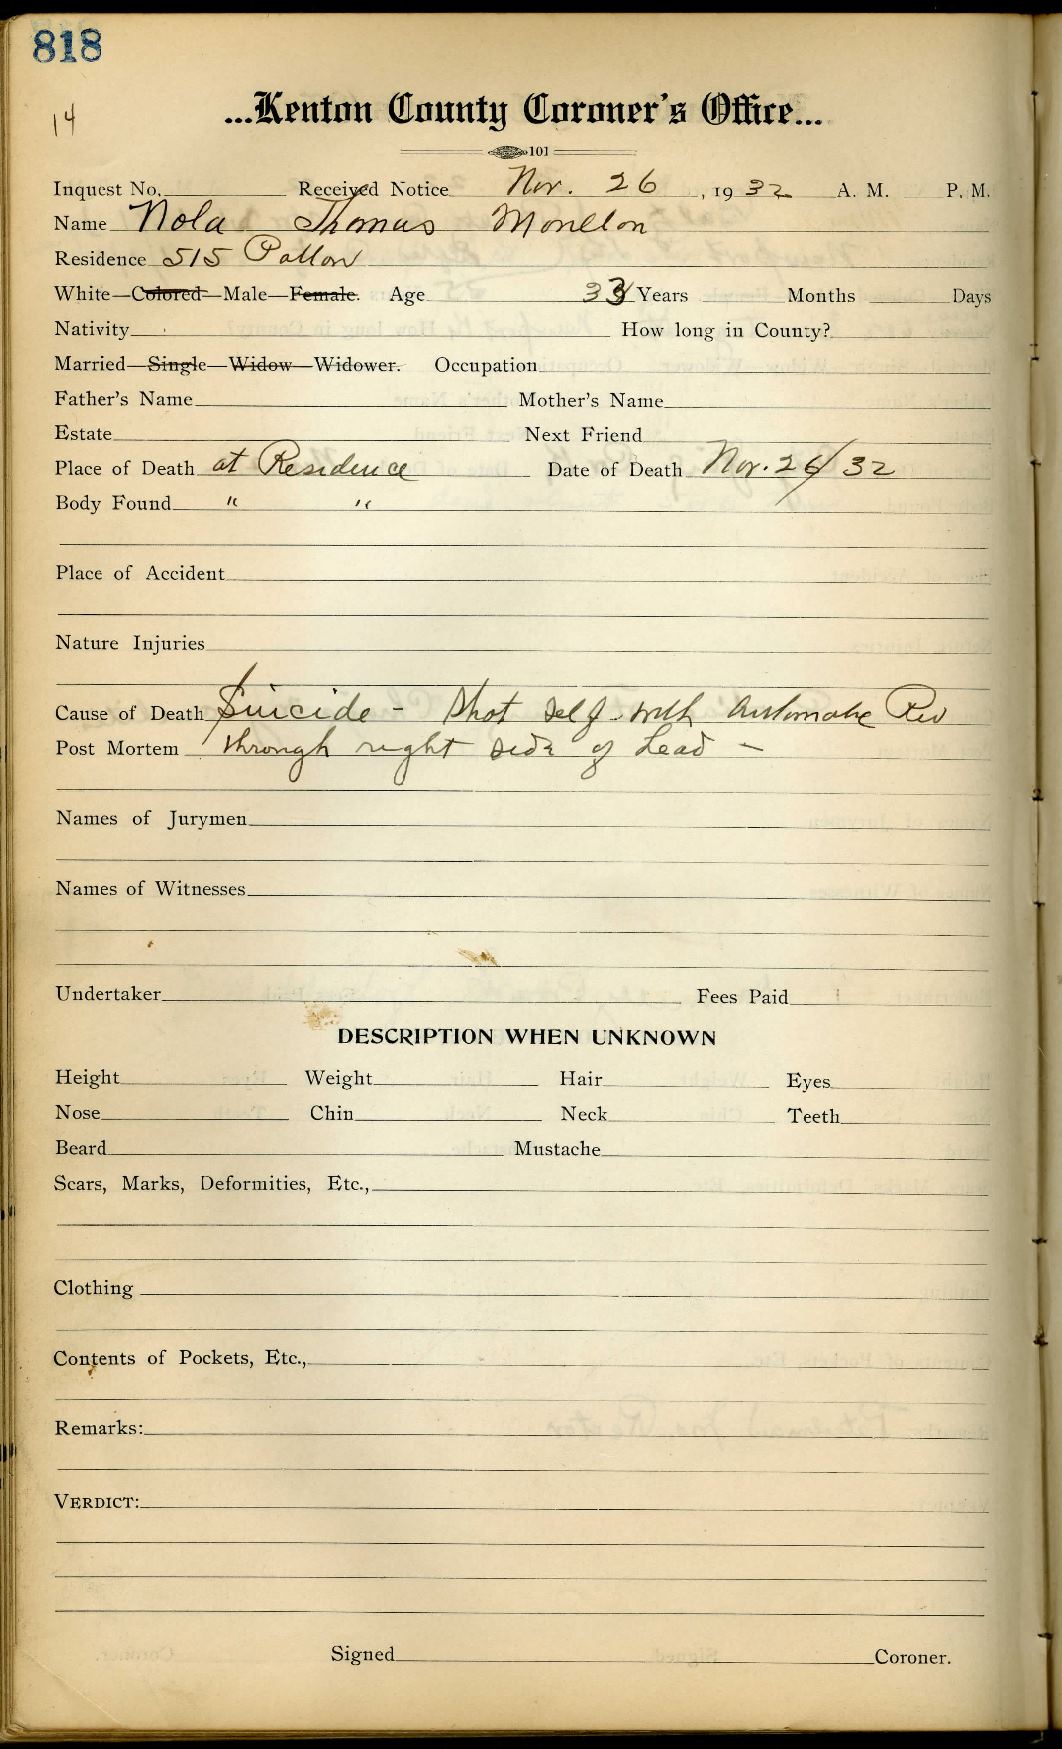 818
14
...Kenton County Coroner's Office...
101
Inquest No. Received Notice Nov. 26, 1932 A. M. P. M.
Name Nola Thomas
Residence 515
White—Colored—Male—Female. Age 33 Years Months Days
Nativity How long in County?
Married—Single—Widow—Widower. Occupation
Father's Name Mother's Name
Estate Next Friend
Place of Death at Residence Date of Death Nov. 26/32
Body Found " "
Place of Accident
Nature Injuries
Cause of Death Suicide - Shot self with Automatic Rev
Post Mortem through right side of head -
Names of Jurymen
Names of Witnesses
Undertaker Fees Paid
DESCRIPTION WHEN UNKNOWN
Height Weight Hair Eyes
Nose Chin Neck Teeth
Beard Mustache
Scars, Marks, Deformities, Etc.,
Clothing
Contents of Pockets, Etc.,
Remarks:
VERDICT:
Signed Coroner.